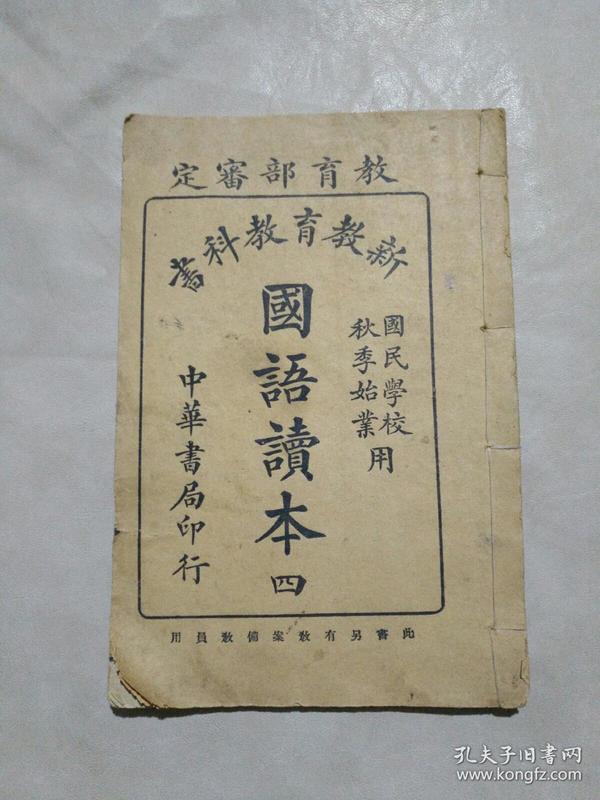 教育部審定
新教育教科書
國民學校
秋季始業
用
國語讀本 四
中華書局印行
此書另有教案備教員用
孔夫子旧书网
www.kongfz.com